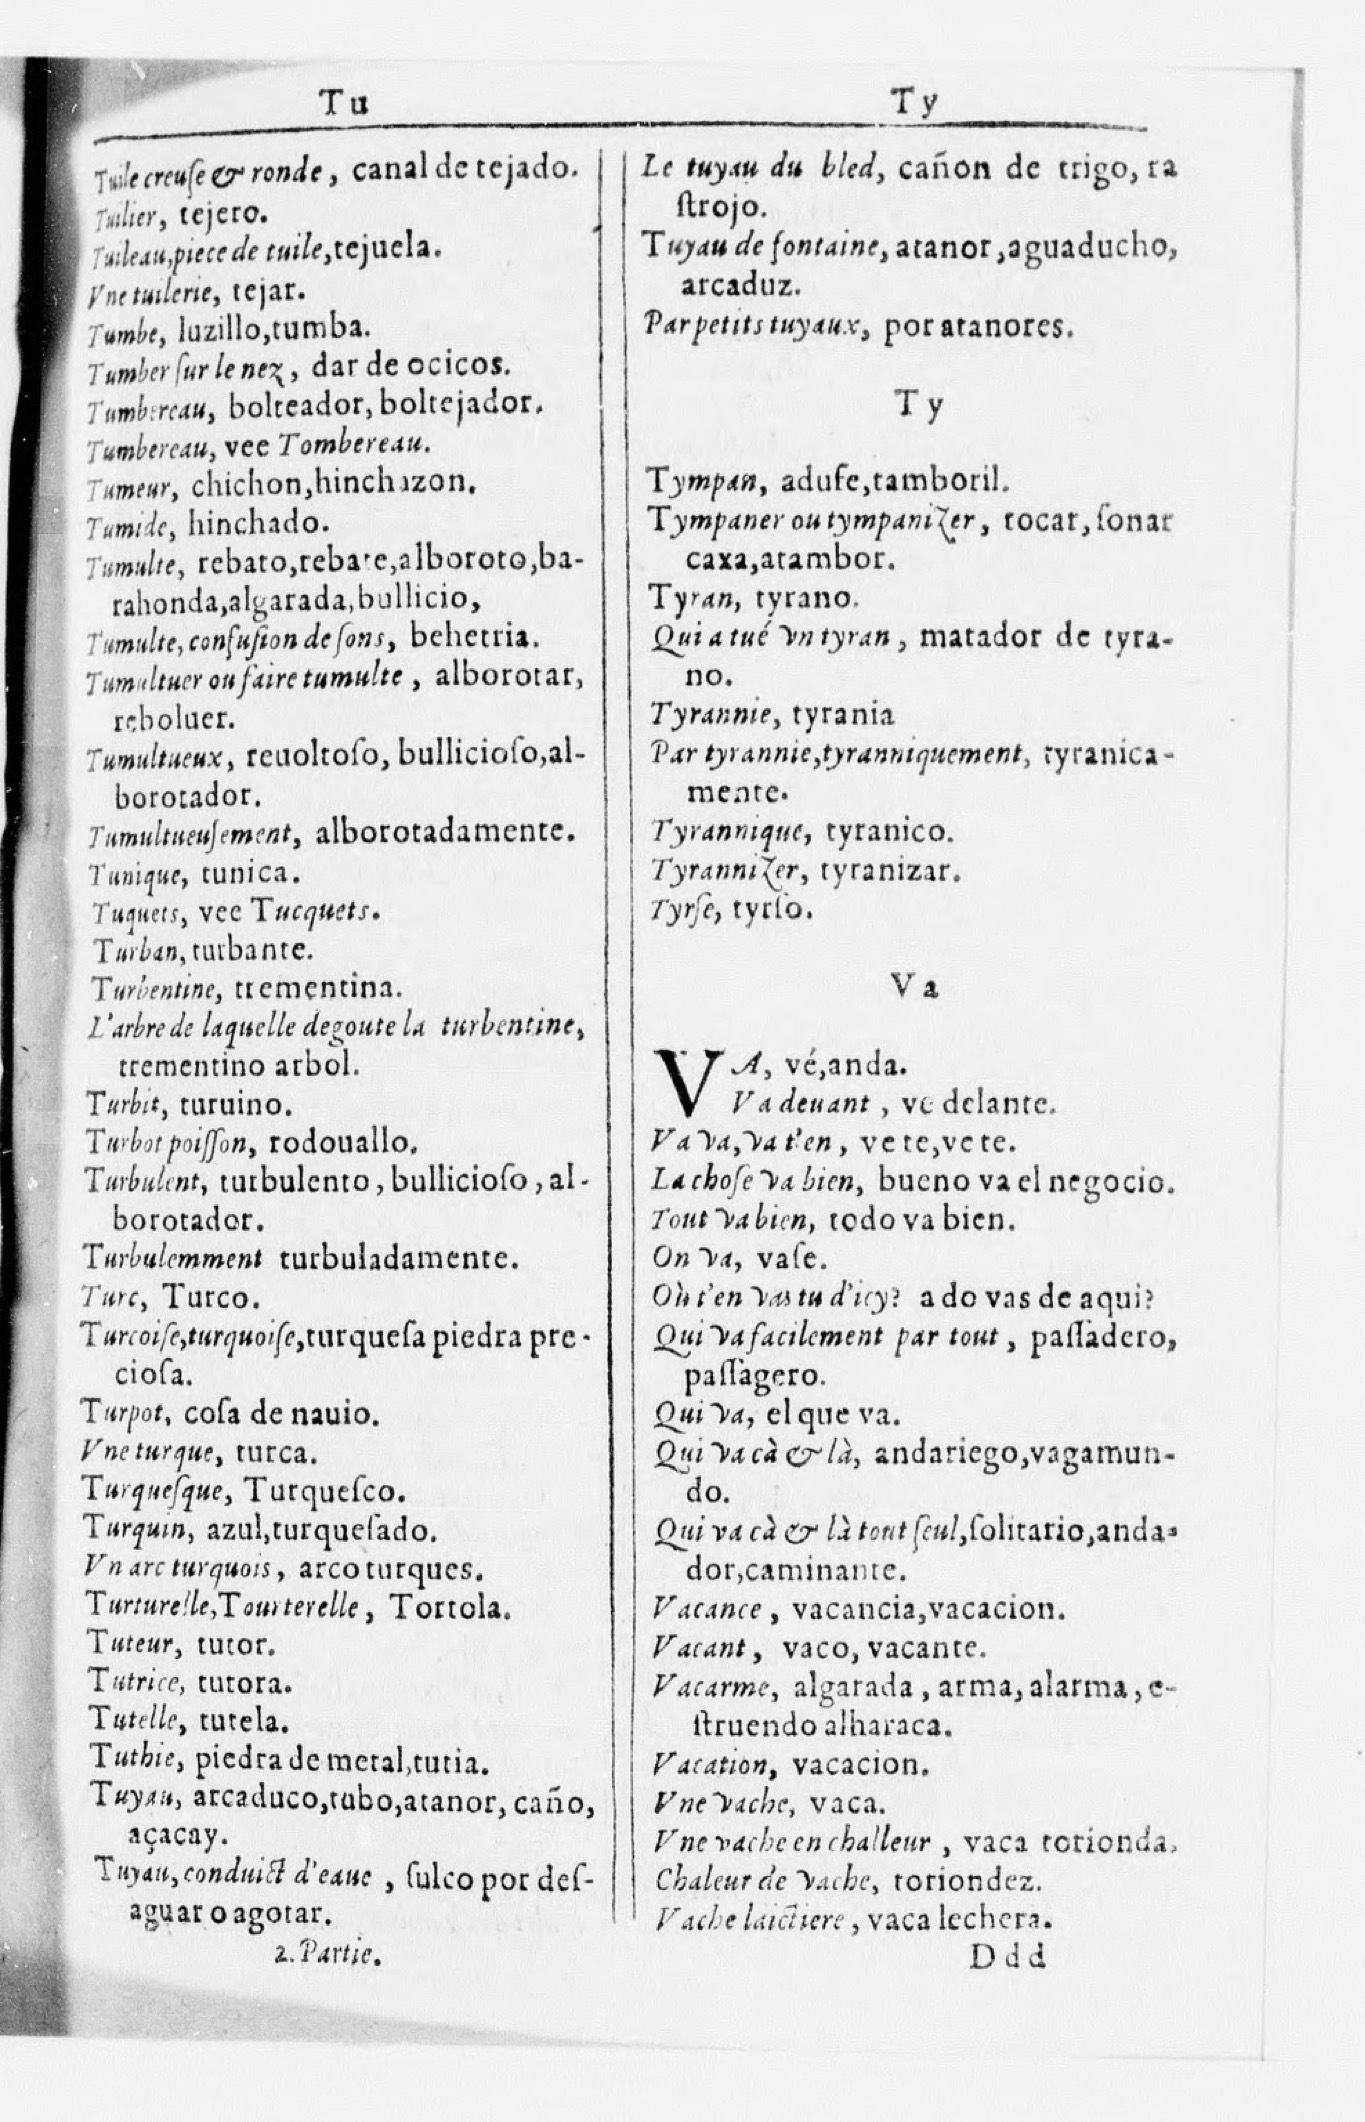 Tu
Tuile creuſe & ronde, canal de tejado.
Tuilier, tejero.
Tuileau, piece de tuile, tejuela.
Vne tuilerie, tejar.
Tumbe, luzillo, tumba.
Tumber ſur le nez, dar de ocicos.
Tumbereau, bolteador, boltejador.
Tumbereau, vee Tombereau.
Tumeur, chichon, hinchazon.
Tumide, hinchado.
Tumulte, rebato, rebate, alboroto, ba-
rahonda, algarada, bullicio,
Tumulte, confuſion de ſons, behetria.
Tumultuer ou faire tumulte, alborotar,
reboluer.
Tumultueux, reuoltoſo, bullicioſo, al-
borotador.
Tumultueuſement, alborotadamente.
Tunique, tunica.
Tuquets, vee Tucquets.
Turban, turbante.
Turbentine, trementina.
L'arbre de laquelle degoute la turbentine,
trementino arbol.
Turbit, turuino.
Turbot poiſſon, rodouallo.
Turbulent, turbulento, bullicioſo, al-
borotador.
Turbulemment turbuladamente.
Turc, Turco.
Turcoiſe, turquoiſe, turqueſa piedra pre-
cioſa.
Turpot, coſa de nauio.
Vne turque, turca.
Turqueſque, Turqueſco.
Turquin, azul, turqueſado.
Vn arc turquois, arco turques.
Turturelle, Tourterelle, Tortola.
Tuteur, tutor.
Tutrice, tutora.
Tutelle, tutela.
Tuthie, piedra de metal, tutia.
Tuyau, arcaduco, tubo, atanor, caño,
açacay.
Tuyau, conduict d'eaue, ſulco por deſ-
aguar o agotar.
2. Partie.
Ty
Le tuyau du bled, cañon de trigo, ra
ſtrojo.
Tuyau de fontaine, atanor, aguaducho,
arcaduz.
Par petits tuyaux, por atanores.
Ty
Tympan, adufe, tamboril.
Tympaner ou tympanizer, tocar, ſonar
caxa, atambor.
Tyran, tyrano.
Qui a tué vn tyran, matador de tyra-
no.
Tyrannie, tyrania
Par tyrannie, tyranniquement, tyranica-
mente.
Tyrannique, tyranico.
Tyrannizer, tyranizar.
Tyrſe, tyrſo.
Va
VA, vé, anda.
Va deuant, ve delante.
Va va, va t'en, ve te, ve te.
La choſe va bien, bueno va el negocio.
Tout va bien, todo va bien.
On va, vaſe.
Où t'en vas tu d'icy? a do vas de aqui?
Qui va facilement par tout, paſſadero,
paſſagero.
Qui va, el que va.
Qui va cà & là, andariego, vagamun-
do.
Qui va cà & là tout ſeul, ſolitario, anda-
dor, caminante.
Vacance, vacancia, vacacion.
Vacant, vaco, vacante.
Vacarme, algarada, arma, alarma, e-
ſtruendo alharaca.
Vacation, vacacion.
Vne vache, vaca.
Vne vache en challeur, vaca torionda.
Chaleur de vache, toriondez.
Vache laictiere, vaca lechera.
Ddd